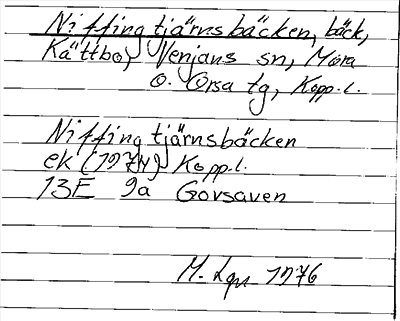 Niffingtjärnsbäcken, bäck,
Kättbo, Venjans sn, Mora
o. Orsa tg, Kopp.l.
Niffingtjärnsbäcken
ek (1974) Kopp.l.
13E 9a Govsaven
M. Lgn 1976